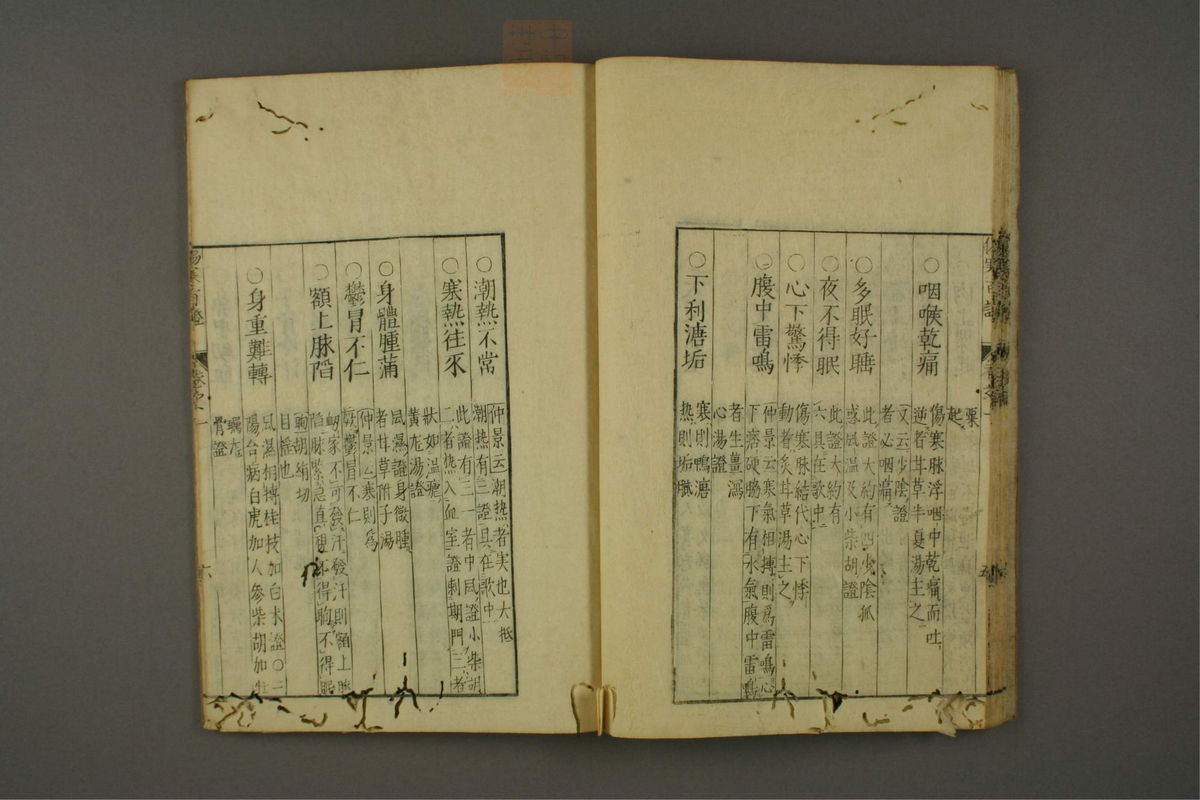 栗
起
○咽喉乾痛
傷寒脉浮咽中乾痛而吐
逆者甘草半夏湯主之
又云少陰證
者必咽痛
○多眠好睡
此證大約有四少陰狐
惑風温及小柴胡證
○夜不得眠
此證大約有
六具在歌中
○心下驚悸
傷寒脉結代心下悸
動者炙甘草湯主之
○腹中雷鳴
仲景云寒氣相搏則爲雷鳴心
下痞硬脇下有水氣腹中雷鳴
者生薑瀉
心湯證
○下利溏垢
寒則鴨溏
热則垢膩
○潮熱不常
仲景云潮热者实也大抵
潮热有三證具在歌中
○寒熱往来
此證有三一者中風證小柴胡
二者热入血室證刺期門三者
狀如温瘧
○身體腫满
風濕證身微腫
者甘草附子湯
○鬱冒不仁
仲景云寒則爲
鬱冒不仁
○額上脉陷
衂家不可發汗發汗則額上脉
陷脉緊急直視不得眴不得眠
眴胡絹切
目揺也
○身重難轉
風濕相搏桂枝加白术證○三
陽合病白虎加人參柴胡加牡
蠣龙
骨證